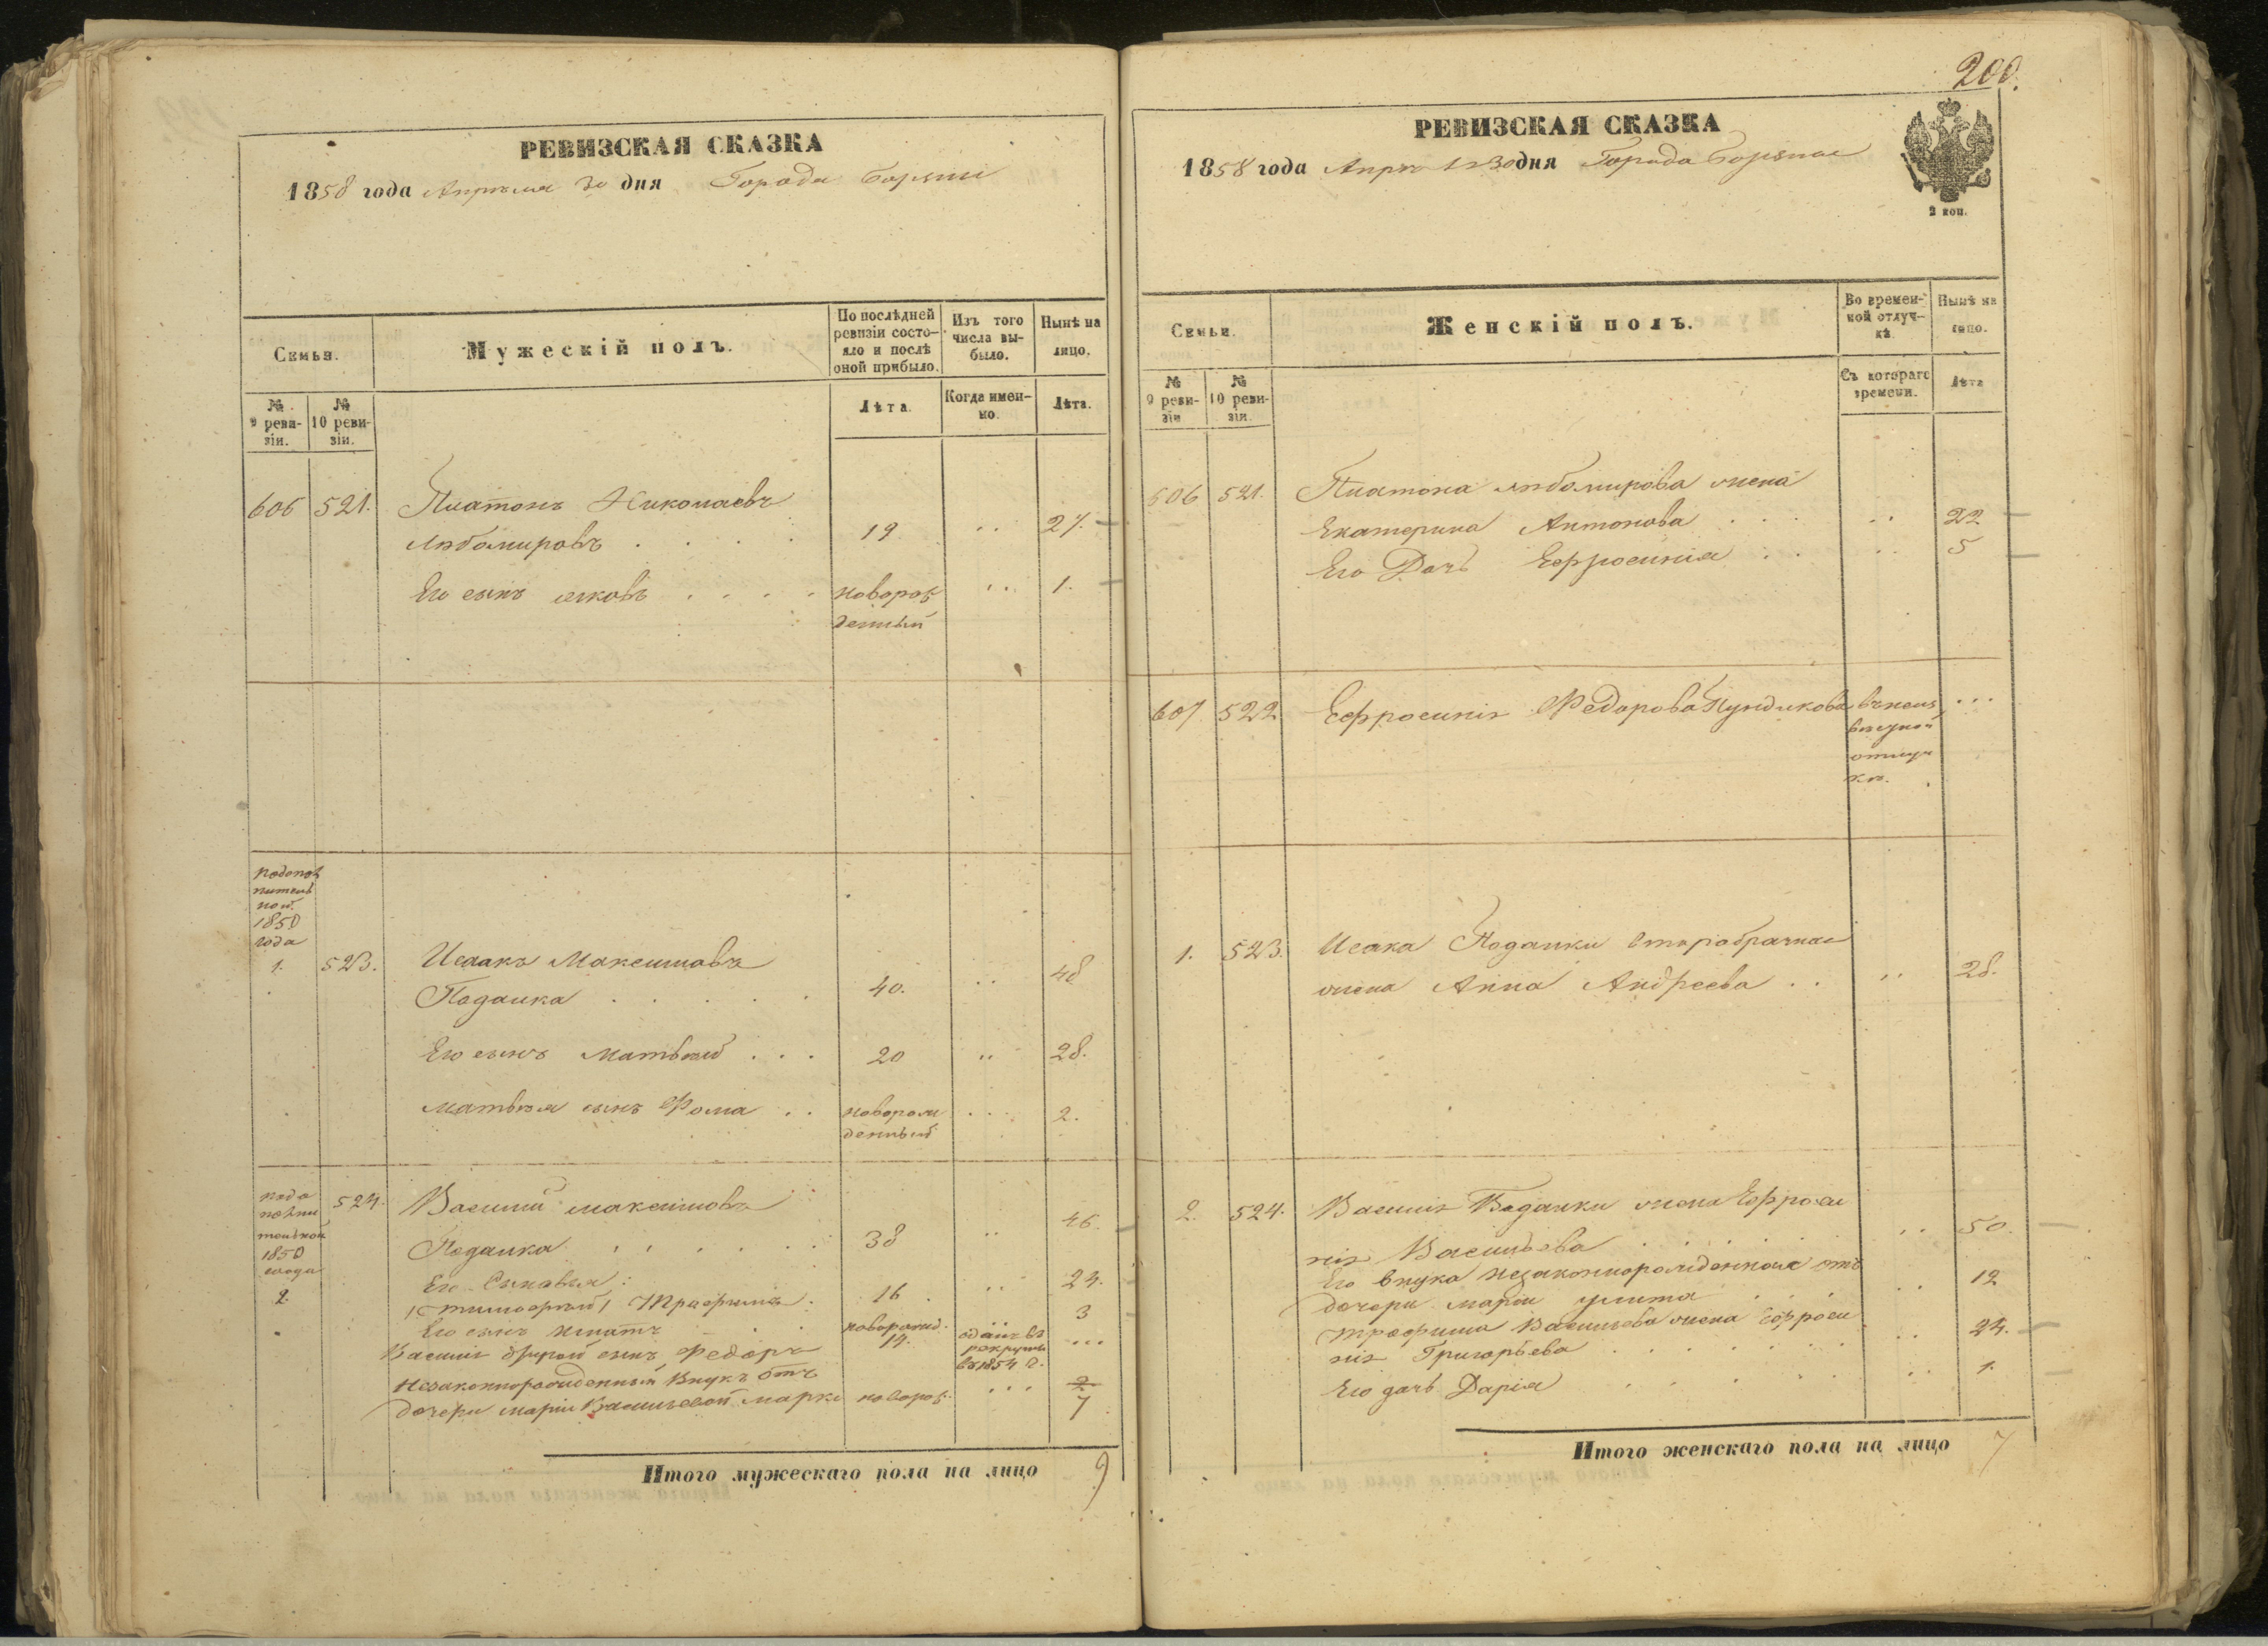 РЕВИЗСКАЯ СКАЗКА
1858 года Апреля 30 дня Города Борзны
Семьи.
Мужескій полъ.
По послѣдней ревизіи состо-
яло и послѣ
оной прибыло.
Изъ того
числа вы-
было.
Нынѣ на
лицо.
№
9 реви-
зіи.
№
10 реви-
зіи.
Лѣта.
Когда имен-
но.
Лѣта.
606 521. Платонъ Николаевъ
Любомировъ . . . . 19 .. 27.
Его сынъ Яковъ . . . . новорож .. 1.
денный
нов.
1850
года
1. 523. Исаакъ Максимовъ
Поданка . . . . . 40. .. 48
Его сынъ Матвѣй . . . 20 .. 28.
Матвѣя сынъ Фома . . новорож ... 2.
денный
подо
полни
тельной
1850
года
2. 524. Василій Максимовъ
Поданка . . . . . 38 .. 46.
Его Сыновья:
1 Тимофей / Трофимъ. 16 .. 24.
Его сынъ Игнатъ новорожд. 3
Василія другой сынъ Федоръ 14. отданъ въ ...
рекруты
въ 1854 г.
Незаконнорожденный внукъ отъ
дочери Маріи Васильевой Марко новорож. ... 7
Итого мужескаго пола на лицо 9
200.
РЕВИЗСКАЯ СКАЗКА
1858 года Апрѣля 30 дня Города Борзны
2 коп.
Семьи.
Женскій полъ.
Во времен-
ной отлуч-
кѣ.
Нынѣ на
лицо.
№
9 реви-
зіи
№
10 реви-
зіи.
Съ котораго
времени.
Лѣта
606 521. Платона Любомирова жена
Екатерина Антонова . . . .. 22
Его Дочь Ефросинія . . .. 5
607 522 Ефросинія Федорова въ неиз ...
вѣстной
отлуч
кѣ.
1. 523. Исака Поданки вторабрачная
жена Анна Андреева . . .. 28.
2. 524. Василія Поданки жена Ефроси
нія Васильева . . . .. 50.
Его внука незаконнорожденная отъ
дочери Маріи Улита . . . 12
Трофима Васильева жена Ефроси
нія Григорьева . . . . .. 24.
Его дочь Дарія . . . . .. 1.
Итого женскаго пола на лицо 7